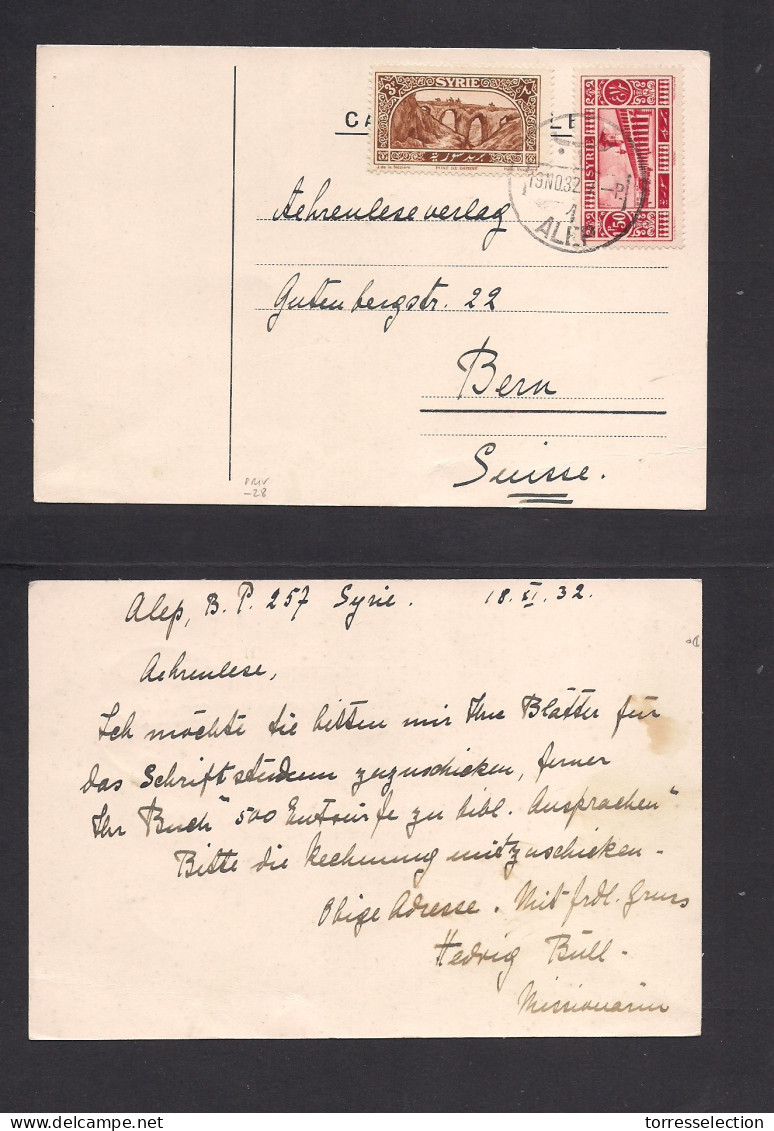 SYRIE
3P
PONT DE DAPHNÉ
SYRIE
1P50
CA LE
19NO.32 -P.
1
ALEP
Aehrenleseverlag
Gutenbergstr. 22
Bern
Suisse.
PRIV
-28
Alep, B. P. 257 Syrie. 18. XI. 32.
Aehrenlese,
Ich möchte Sie bitten mir Ihre Blätter für
das Schriftstudium zuzuschicken, ferner
Ihr Buch "500 Entwürfe zu bibl. Ansprachen"
Bitte die Rechnung mitzuschicken.
Obige Adresse. Mit frdl. Gruss
Hedwig Büll.
Missionarin
www.delcampe.net
torresselection